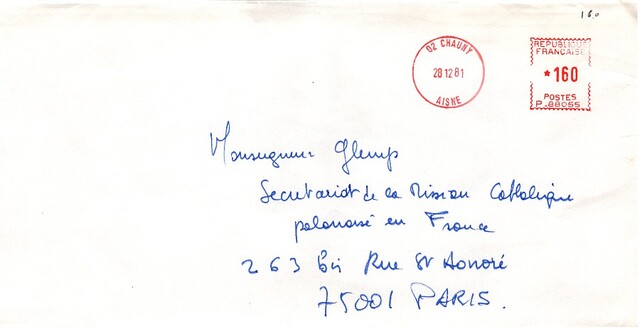 160
02 CHAUNY
28 12 81
AISNE
REPUBLIQUE
FRANCAISE
*160
POSTES
P.88055
Monseigneur Glemp
Secretariat de la Mission Catholique
polonaise en France
263 bis Rue St Honoré
75001 PARIS.